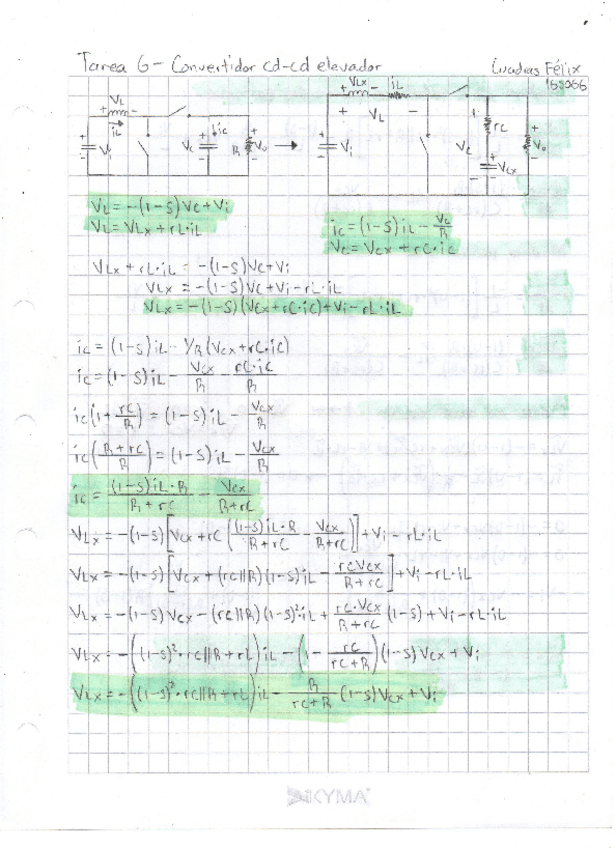 Tarea 6 - Convertidor cd-cd elevador
Cuadras Félix
168066
VL
+ -
iL
+
Vi
-
+
Vc
-
ic
R
+
Vo
-
VLx
iL
+ -
+ VL -
+
Vi
-
+
Vc
-
rc
+
Vcx
-
+
Vo
-
VL = -(1-S)Vc + Vi
VL = VLx + rL·iL
ic = (1-S)iL - Vc/R
Vc = Vcx + rc·ic
VLx + rL·iL = -(1-S)Vc + Vi
VLx = -(1-S)Vc + Vi - rL·iL
VLx = -(1-S)(Vcx + rc·ic) + Vi - rL·iL
ic = (1-S)iL - 1/R(Vcx + rc·ic)
ic = (1-S)iL - Vcx/R - rc·ic/R
ic(1 + rc/R) = (1-S)iL - Vcx/R
ic((R+rc)/R) = (1-S)iL - Vcx/R
ic = (1-S)iL·R/(R+rc) - Vcx/(R+rc)
VLx = -(1-S)[Vcx + rc((1-S)iL·R/(R+rc) - Vcx/(R+rc))] + Vi - rL·iL
VLx = -(1-S)[Vcx + (rc||R)(1-S)iL - rcVcx/(R+rc)] + Vi - rL·iL
VLx = -(1-S)Vcx - (rc||R)(1-S)²iL + rc·Vcx/(R+rc) (1-S) + Vi - rL·iL
VLx = -((1-S)²·rc||R + rL)iL - (1 - rc/(rc+R))(1-S)Vcx + Vi
VLx = -((1-S)²·rc||R + rL)iL - R/(rc+R) (1-S)Vcx + Vi
SKYMA